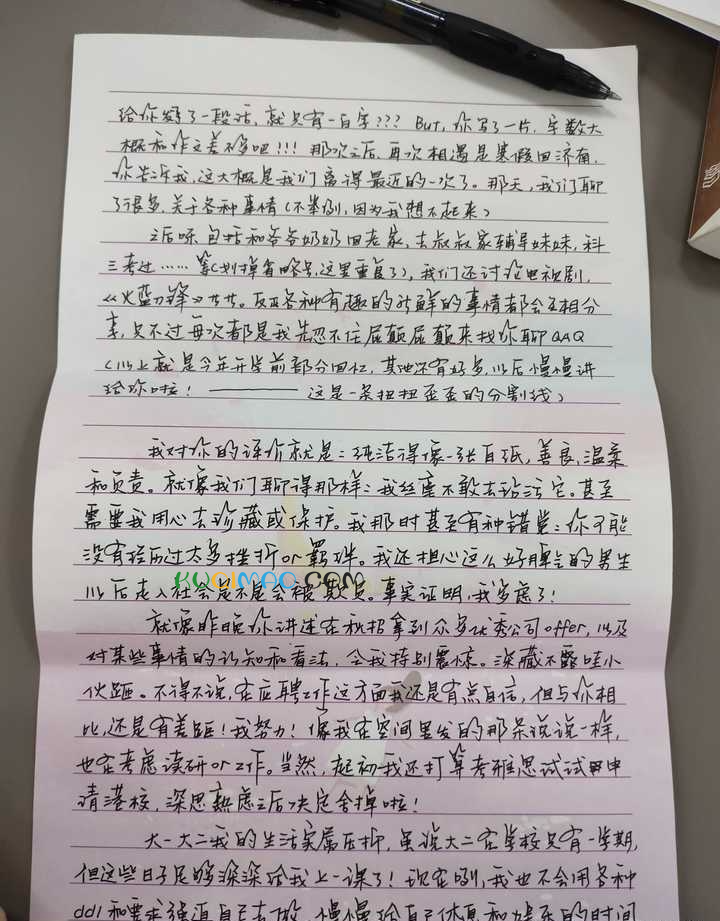 给你发了一段话，就只有一百字？？？But，你写了一片，字数大
概和作文差不多吧！！！那次之后，再次相遇是寒假回济南，
你告诉我，这大概是我们离得最近的一次了。那天，我们聊
了很多，关于各种事情（不举例，因为我想不起来）
之后呀，包括和爷爷奶奶回老家，去叔叔家辅导妹妹，科
三考过……等（划掉省略号，这里重复了），我们还讨论电视剧，
《火蓝刀锋》。反正各种有趣的新鲜的事情都会互相分
享，只不过每次都是我先忍不住屁颠屁颠来找你聊QAQ
（以上就是今年开学前部分回忆，其他还有好多，以后慢慢讲
给你啦！———— 这是一条扭扭歪歪的分割线）
我对你的评价就是：纯洁得像一张白纸，善良，温柔
和负责。就像我们聊得那样：我丝毫不敢去玷污它。甚至
需要我用心去珍藏或保护。我那时甚至有种错觉：你可能
没有经历过太多挫折or羁绊。我还担心这么好脾气的男生
KUQIMAO.COM
以后走入社会是不是会被欺负。事实证明，我多虑了！
就像昨晚你讲述在秋招拿到众多优秀公司offer，以及
对某些事情的认知和看法，令我特别震惊。深藏不露哇小
伙距。不得不说，在应聘工作这方面我还是有点自信，但与你相
比，还是有差距！我努力！像我在空间里发的那条说说一样，
也在考虑读研or工作。当然，起初我还打算考雅思试试申
请港校，深思熟虑之后决定舍掉啦！
大一大二我的生活实属压抑，虽说大二在学校只有一学期，
但这些日子足够深深给我上一课了！现在咧，我也不会用各种
ddl和要求强迫自己去做，慢慢给自己休息和娱乐的时间